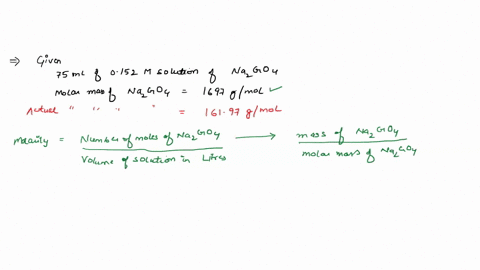 ⇒ Given
75 ml of 0.152 M solution of Na2GO4
Molar mass of Na2GO4 = 1697 g/mol ✓
Actual " " " " = 161.97 g/mol
Molarity = Number of moles of Na2GO4 / Volume of solution in Litres → mass of Na2GO4 / molar mass of Na2GO4